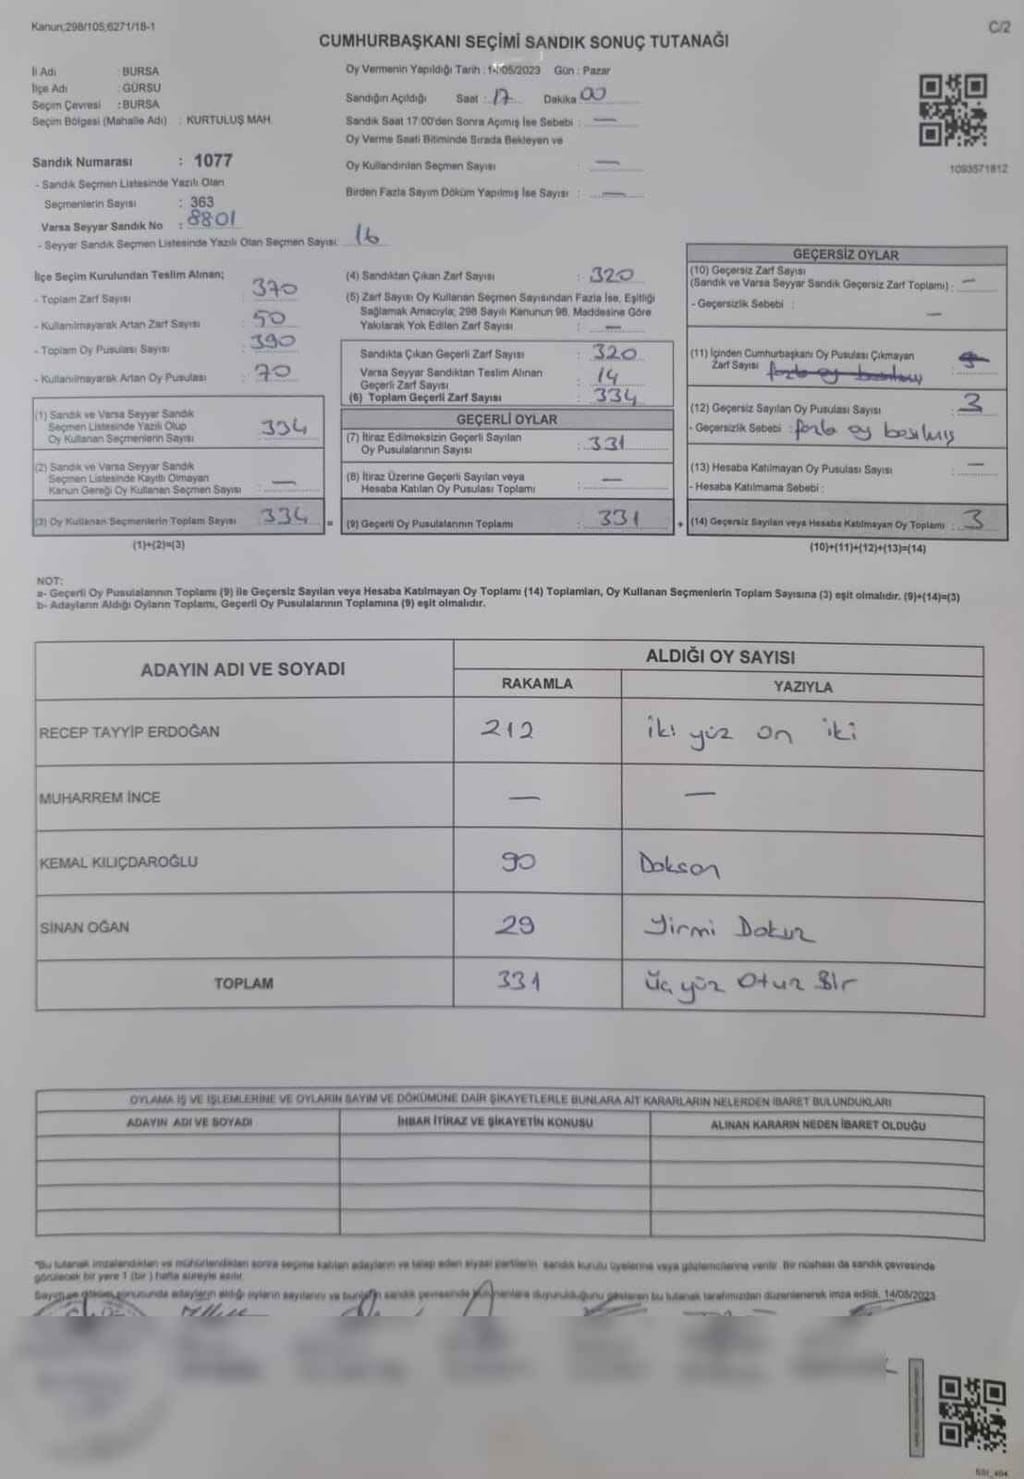 Kanun:298/105,6271/18-1
C/2
CUMHURBAŞKANI SEÇİMİ SANDIK SONUÇ TUTANAĞI
İl Adı : BURSA
İlçe Adı : GÜRSU
Seçim Çevresi : BURSA
Seçim Bölgesi (Mahalle Adı) : KURTULUŞ MAH.
Sandık Numarası : 1077
- Sandık Seçmen Listesinde Yazılı Olan
Seçmenlerin Sayısı : 363
Varsa Seyyar Sandık No : 8801
- Seyyar Sandık Seçmen Listesinde Yazılı Olan Seçmen Sayısı: 16
Oy Vermenin Yapıldığı Tarih : 14/05/2023 Gün : Pazar
Sandığın Açıldığı Saat : 17 Dakika 00
Sandık Saat 17:00'den Sonra Açımış İse Sebebi : —
Oy Verme Saati Bitiminde Sırada Bekleyen ve
Oy Kullandırılan Seçmen Sayısı : —
Birden Fazla Sayım Döküm Yapılmış İse Sayısı : —
1093571812
İlçe Seçim Kurulundan Teslim Alınan;
- Toplam Zarf Sayısı : 370
- Kullanılmayarak Artan Zarf Sayısı : 50
- Toplam Oy Pusulası Sayısı : 390
- Kullanılmayarak Artan Oy Pusulası : 70
(1) Sandık ve Varsa Seyyar Sandık
Seçmen Listesinde Yazılı Olup
Oy Kullanan Seçmenlerin Sayısı : 334
(2) Sandık ve Varsa Seyyar Sandık
Seçmen Listesinde Kayıtlı Olmayan
Kanun Gereği Oy Kullanan Seçmen Sayısı : —
(3) Oy Kullanan Seçmenlerin Toplam Sayısı : 334
(1)+(2)=(3)
(4) Sandıktan Çıkan Zarf Sayısı : 320
(5) Zarf Sayısı Oy Kullanan Seçmen Sayısından Fazla İse, Eşitliği
Sağlamak Amacıyla; 298 Sayılı Kanunun 98. Maddesine Göre
Yakılarak Yok Edilen Zarf Sayısı : —
Sandıkta Çıkan Geçerli Zarf Sayısı : 320
Varsa Seyyar Sandıktan Teslim Alınan
Geçerli Zarf Sayısı : 14
(6) Toplam Geçerli Zarf Sayısı : 334
GEÇERLİ OYLAR
(7) İtiraz Edilmeksizin Geçerli Sayılan
Oy Pusulalarının Sayısı : 331
(8) İtiraz Üzerine Geçerli Sayılan veya
Hesaba Katılan Oy Pusulası Toplamı : —
= (9) Geçerli Oy Pusulalarının Toplamı : 331
GEÇERSİZ OYLAR
(10) Geçersiz Zarf Sayısı
(Sandık ve Varsa Seyyar Sandık Geçersiz Zarf Toplamı) : —
- Geçersizlik Sebebi : —
(11) İçinden Cumhurbaşkanı Oy Pusulası Çıkmayan
Zarf Sayısı fazla oy basılmış
(12) Geçersiz Sayılan Oy Pusulası Sayısı : 3
- Geçersizlik Sebebi : fazla oy basılmış
(13) Hesaba Katılmayan Oy Pusulası Sayısı : —
- Hesaba Katılmama Sebebi :
+ (14) Geçersiz Sayılan veya Hesaba Katılmayan Oy Toplamı : 3
(10)+(11)+(12)+(13)=(14)
NOT:
a- Geçerli Oy Pusulalarının Toplamı (9) ile Geçersiz Sayılan veya Hesaba Katılmayan Oy Toplamı (14) Toplamları, Oy Kullanan Seçmenlerin Toplam Sayısına (3) eşit olmalıdır. (9)+(14)=(3)
b- Adayların Aldığı Oyların Toplamı, Geçerli Oy Pusulalarının Toplamına (9) eşit olmalıdır.
ADAYIN ADI VE SOYADI
ALDIĞI OY SAYISI
RAKAMLA YAZIYLA
RECEP TAYYİP ERDOĞAN 212 iki yüz on iki
MUHARREM İNCE — —
KEMAL KILIÇDAROĞLU 90 Doksan
SİNAN OĞAN 29 Yirmi Dokuz
TOPLAM 331 Üç yüz Otuz Bir
OYLAMA İŞ VE İŞLEMLERİNE VE OYLARIN SAYIM VE DÖKÜMÜNE DAİR ŞİKAYETLERLE BUNLARA AİT KARARLARIN NELERDEN İBARET BULUNDUKLARI
ADAYIN ADI VE SOYADI İHBAR İTİRAZ VE ŞİKAYETİN KONUSU ALINAN KARARIN NEDEN İBARET OLDUĞU
*Bu tutanak imzalandıktan ve mühürlendikten sonra seçime katılan adayların ve talep eden siyasi partilerin sandık kurulu üyelerine veya gözlemcilerine verilir. Bir nüshası da sandık çevresinde
görülecek bir yere 1 (bir ) hafta süreyle asılır.
Sayım ve döküm sonusunda adayların aldığı oyların sayılarını ve bunların sandık çevresinde bulunanlara duyurulduğunu gösteren bu tutanak tarafımızdan düzenlenerek imza edildi. 14/05/2023